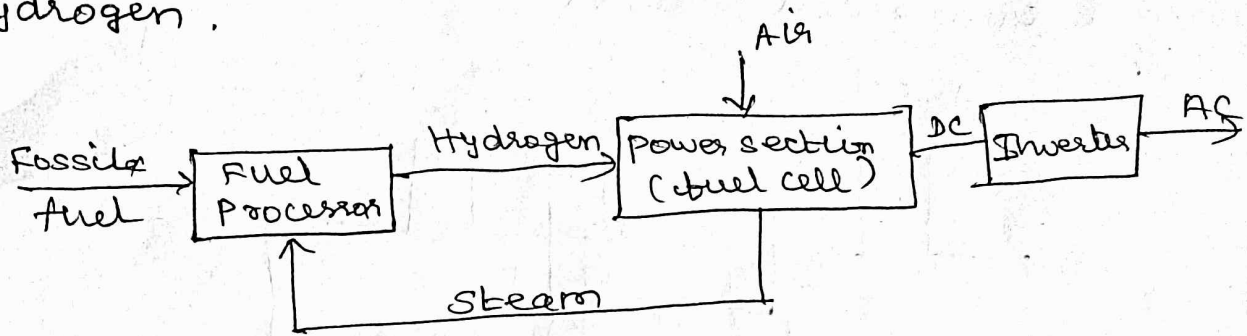 ydrogen.
Air
Fossil
fuel
Fuel
Processor
Hydrogen
Power section
(fuel cell)
DC
Inverter
AC
Steam